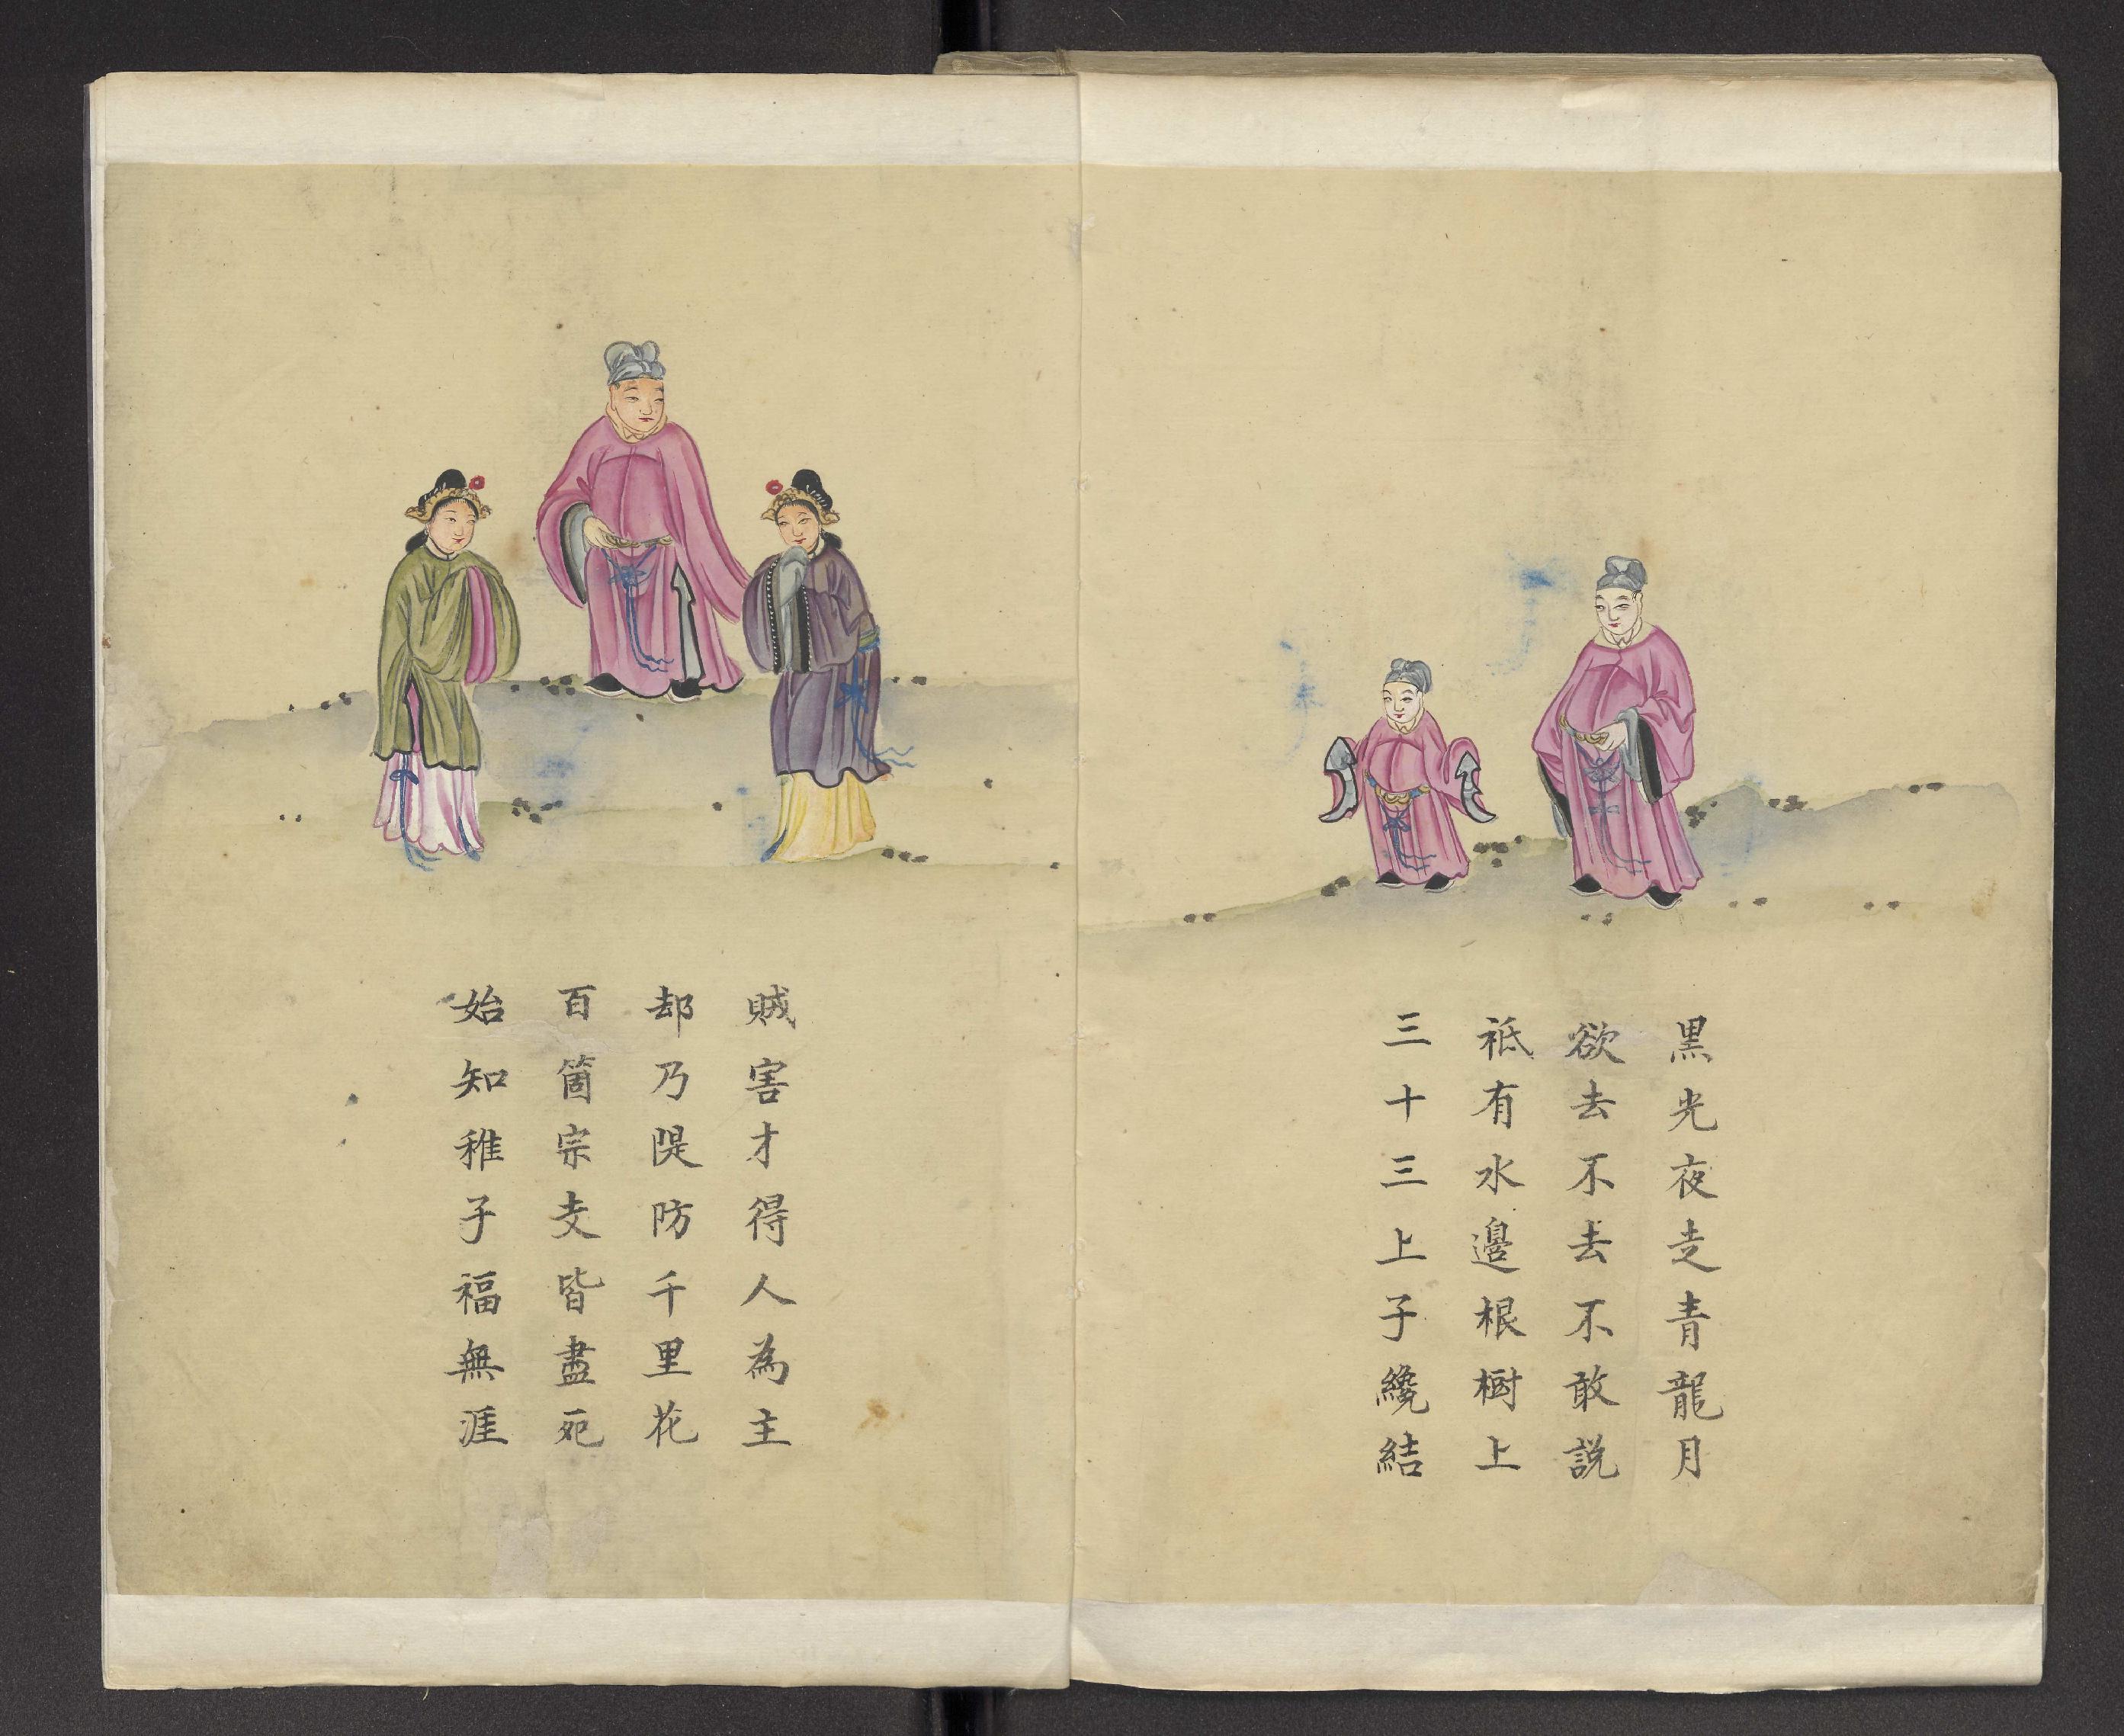 黒光夜走青龍月
欲去不去不敢説
祗有水邊根樹上
三十三上子纔結
賊害才得人為主
却乃隄防千里花
百箇宗支皆盡死
始知稚子福無涯